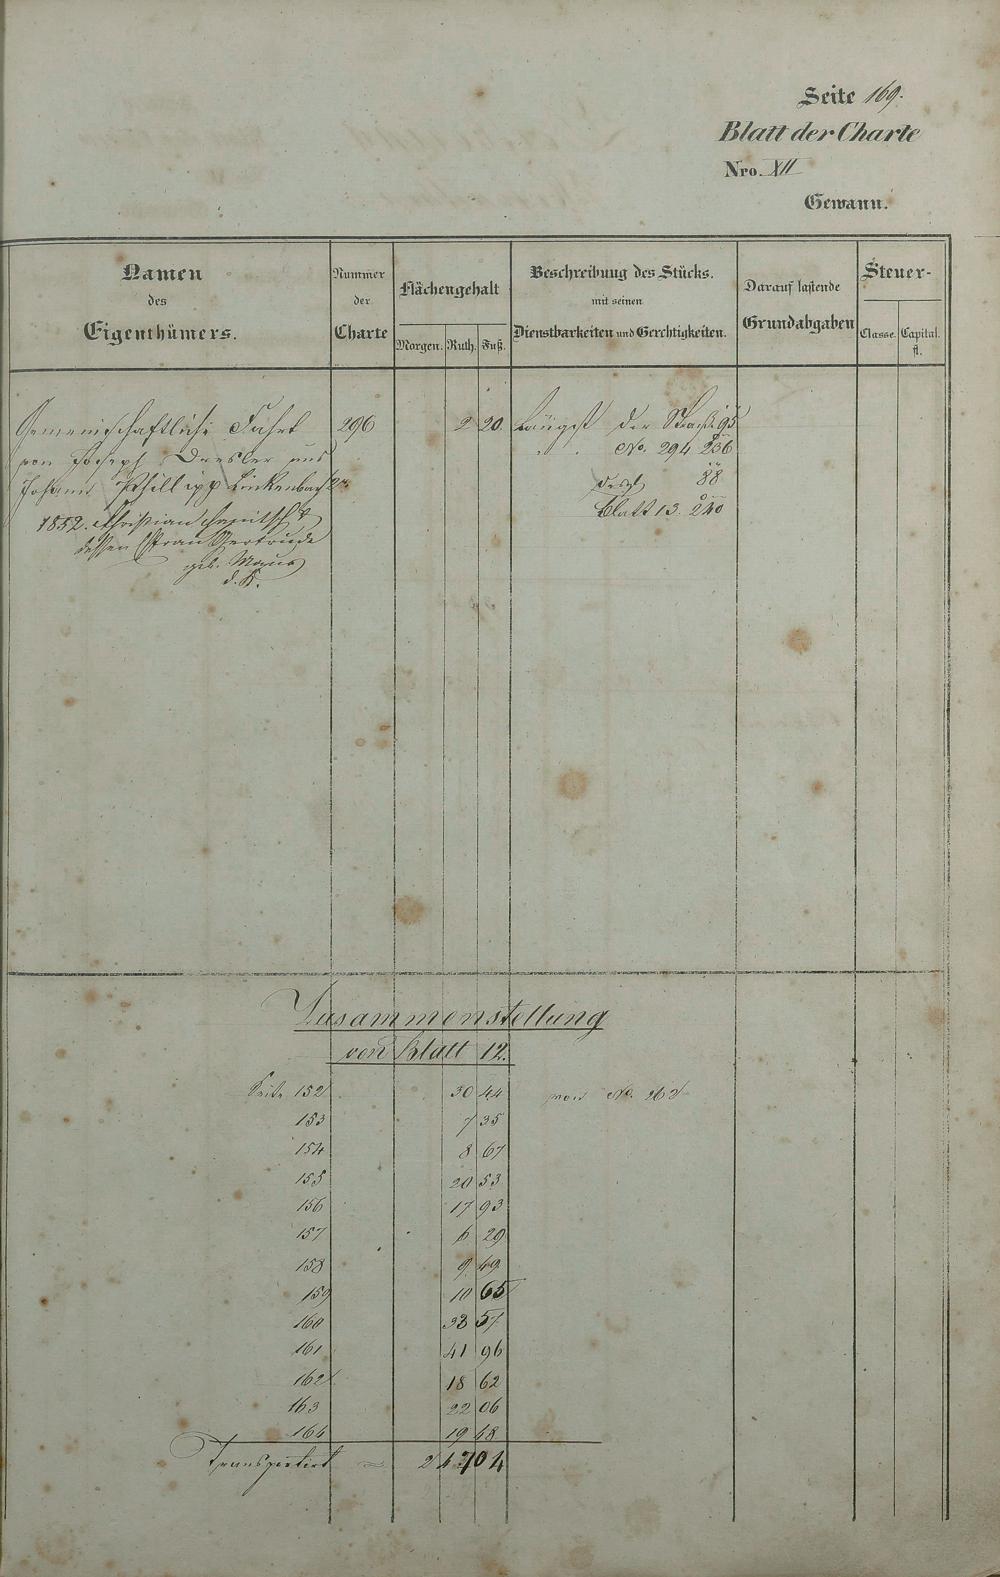 Seite 169.
Blatt der Charte
Nro. XII
Gewann.
Namen
des
Eigenthümers.
Nummer
der
Charte
Flächengehalt
Morgen. Ruth. Fuß.
Beschreibung des Stücks.
mit seinen
Dienstbarkeiten und Gerechtigkeiten.
Darauf lastende
Grundabgaben
Steuer-
Classe. Capital.
fl.
Gemeinschaftliche Fahrt 296 2 20 Längst der 95
von Joseph Dresler und No. 294 236
Johann Phillipp Linkenbach 2r 88
1852. Christian & Blatt 13. 240
dessen Ehfrau Gertrude
geb. Maus
d. K.
Zusammenstellung
von Blatt 12.
Seite 152 30 44 von No. 262
153 7 35
154 8 67
155 20 53
156 17 93
157 6 29
158 9 49
159 10 65
160 33 57
161 41 96
162 18 62
163 22 06
164 19 48
Transportirt = 2 47 04